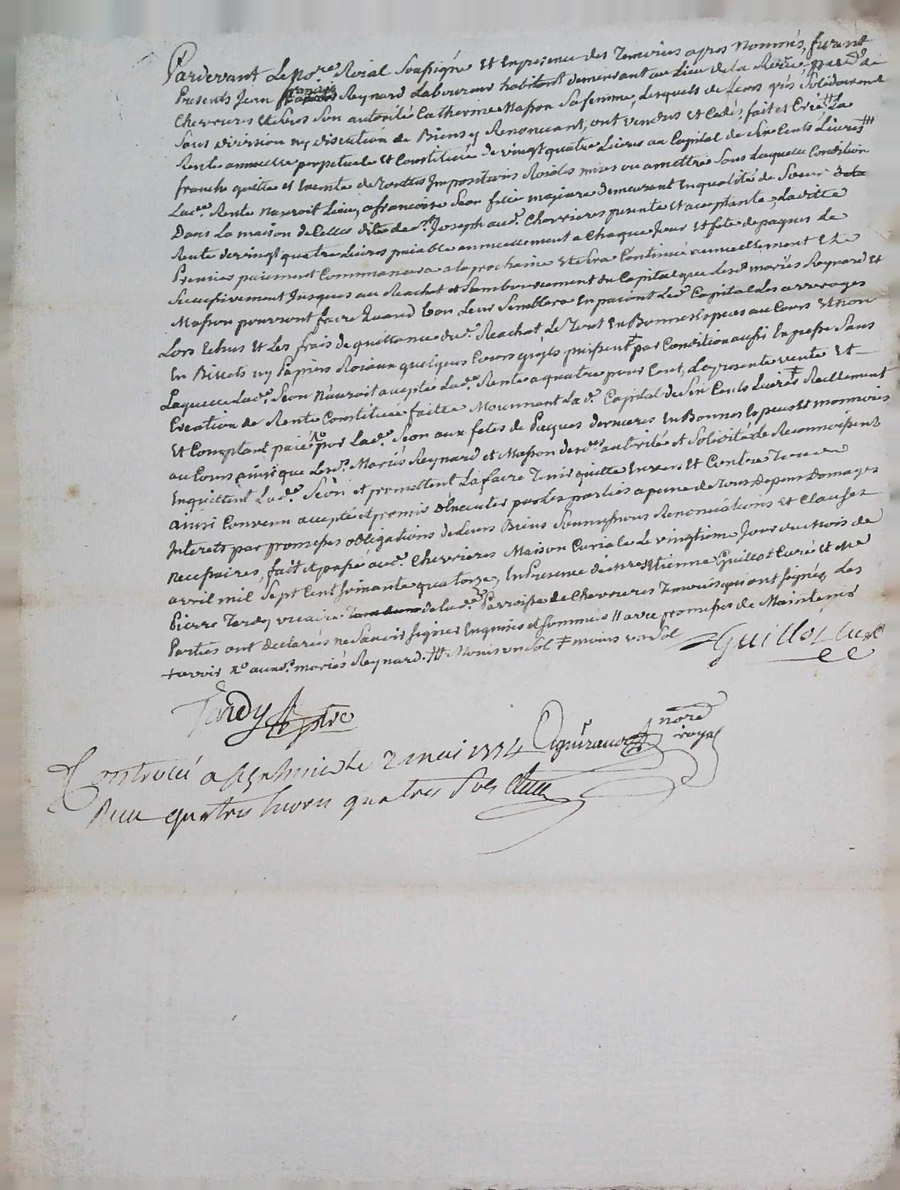 Pardevant Le No.re Roial Soussigné Et En presence des Temoins apres Nommés, furent
Presents Jean françois Reynard Laboureur habitant demeurant au Lieu de la par.se de
Chevrieres Et Sous Son autorité Catherine Masson Sa femme, Lesquels de Leurs grés Solidairement
Sans division ny discution de Biens y Renoncant, ont vendus et Cedés, fait et Créé La
Rente annuelle perpetuelle Et Constituée de vingt quatre Livres au Capital de Six Cents Livres
franche quitte et Exempte de toutes Impositions Roiales mises ou a mettre Sans laquelle Condition
Lad.e Rente n'auroit Lieu, a françoise Seon fille majeure demeurant En qualité de Soeur
Dans La maison de Celles dites de S.t Joseph aud. Chevrieres presente Et acceptante Laditte
Rente de vingt quatre Livres paiable annuellement a Chaque Jour Et fete de paques Le
Premier paiement Commencera a la prochaine Et Sera Continué annuellement Et
Successivement Jusques au Rachat et Remboursement du Capital que Lesd. mariés Reynard Et
Masson pourront faire Quand bon Leur Semblera En paiant Led. Capital Les arrerages
Lors Echus Et Les frais de quittance dud. Rachat Le Tout En Bonnes Especes au Cours Et Non
En Billets ny Papiers Roiaux quelques Cours qu'ils puissent par Condition aussi Expresse Sans
Laquelle Lad. Seon N'auroit accepté Lad. Rente a quatre pour Cent, La presente vente Et
Creation de Rente Constituée faitte Moiennant Lad. Capital de Six Cents Livres Reellement
Et Comptant paié par Lad. Seon aux fetes de Paques dernieres En Bonnes Especes Et monnoies
au Cours ainsi que Lesd. Mariés Reynard et Masson de lad. autorité et Solidité Le Reconnoissent
En quittent Lad. Seon et promettent La faire Tenir quitte Envers Et Contre Tous
ainsi Convenu accepté et promis d'Executer par Les parties a peine de Tous depens Domages
Interets par promesses obligations de Leurs Biens Soumissions Renonciations Et Clauses
Necessaires, fait et passé aud. Chevrieres Maison Curiale Le vingtieme Jour du Mois de
avril mil Sept Cent Soixante quatorze, En Presence de m.re Etienne Guillot Curé et m.re
Pierre Tardy vicaire de lad. Parroisse de Chevrieres Temoins qui ont Signés, Les
Parties ont declarés ne Scavoir Signer Enquises et Sommés # avec promesses de Maintenir
+ avoir auxd. mariés Reynard. # Moins un Sol ‡ moins un Sol
Guillot Curé
Tardy ptre
no.re royal
Controllé a le 2 mai 1774
Reçu quatre livres quatre Sols